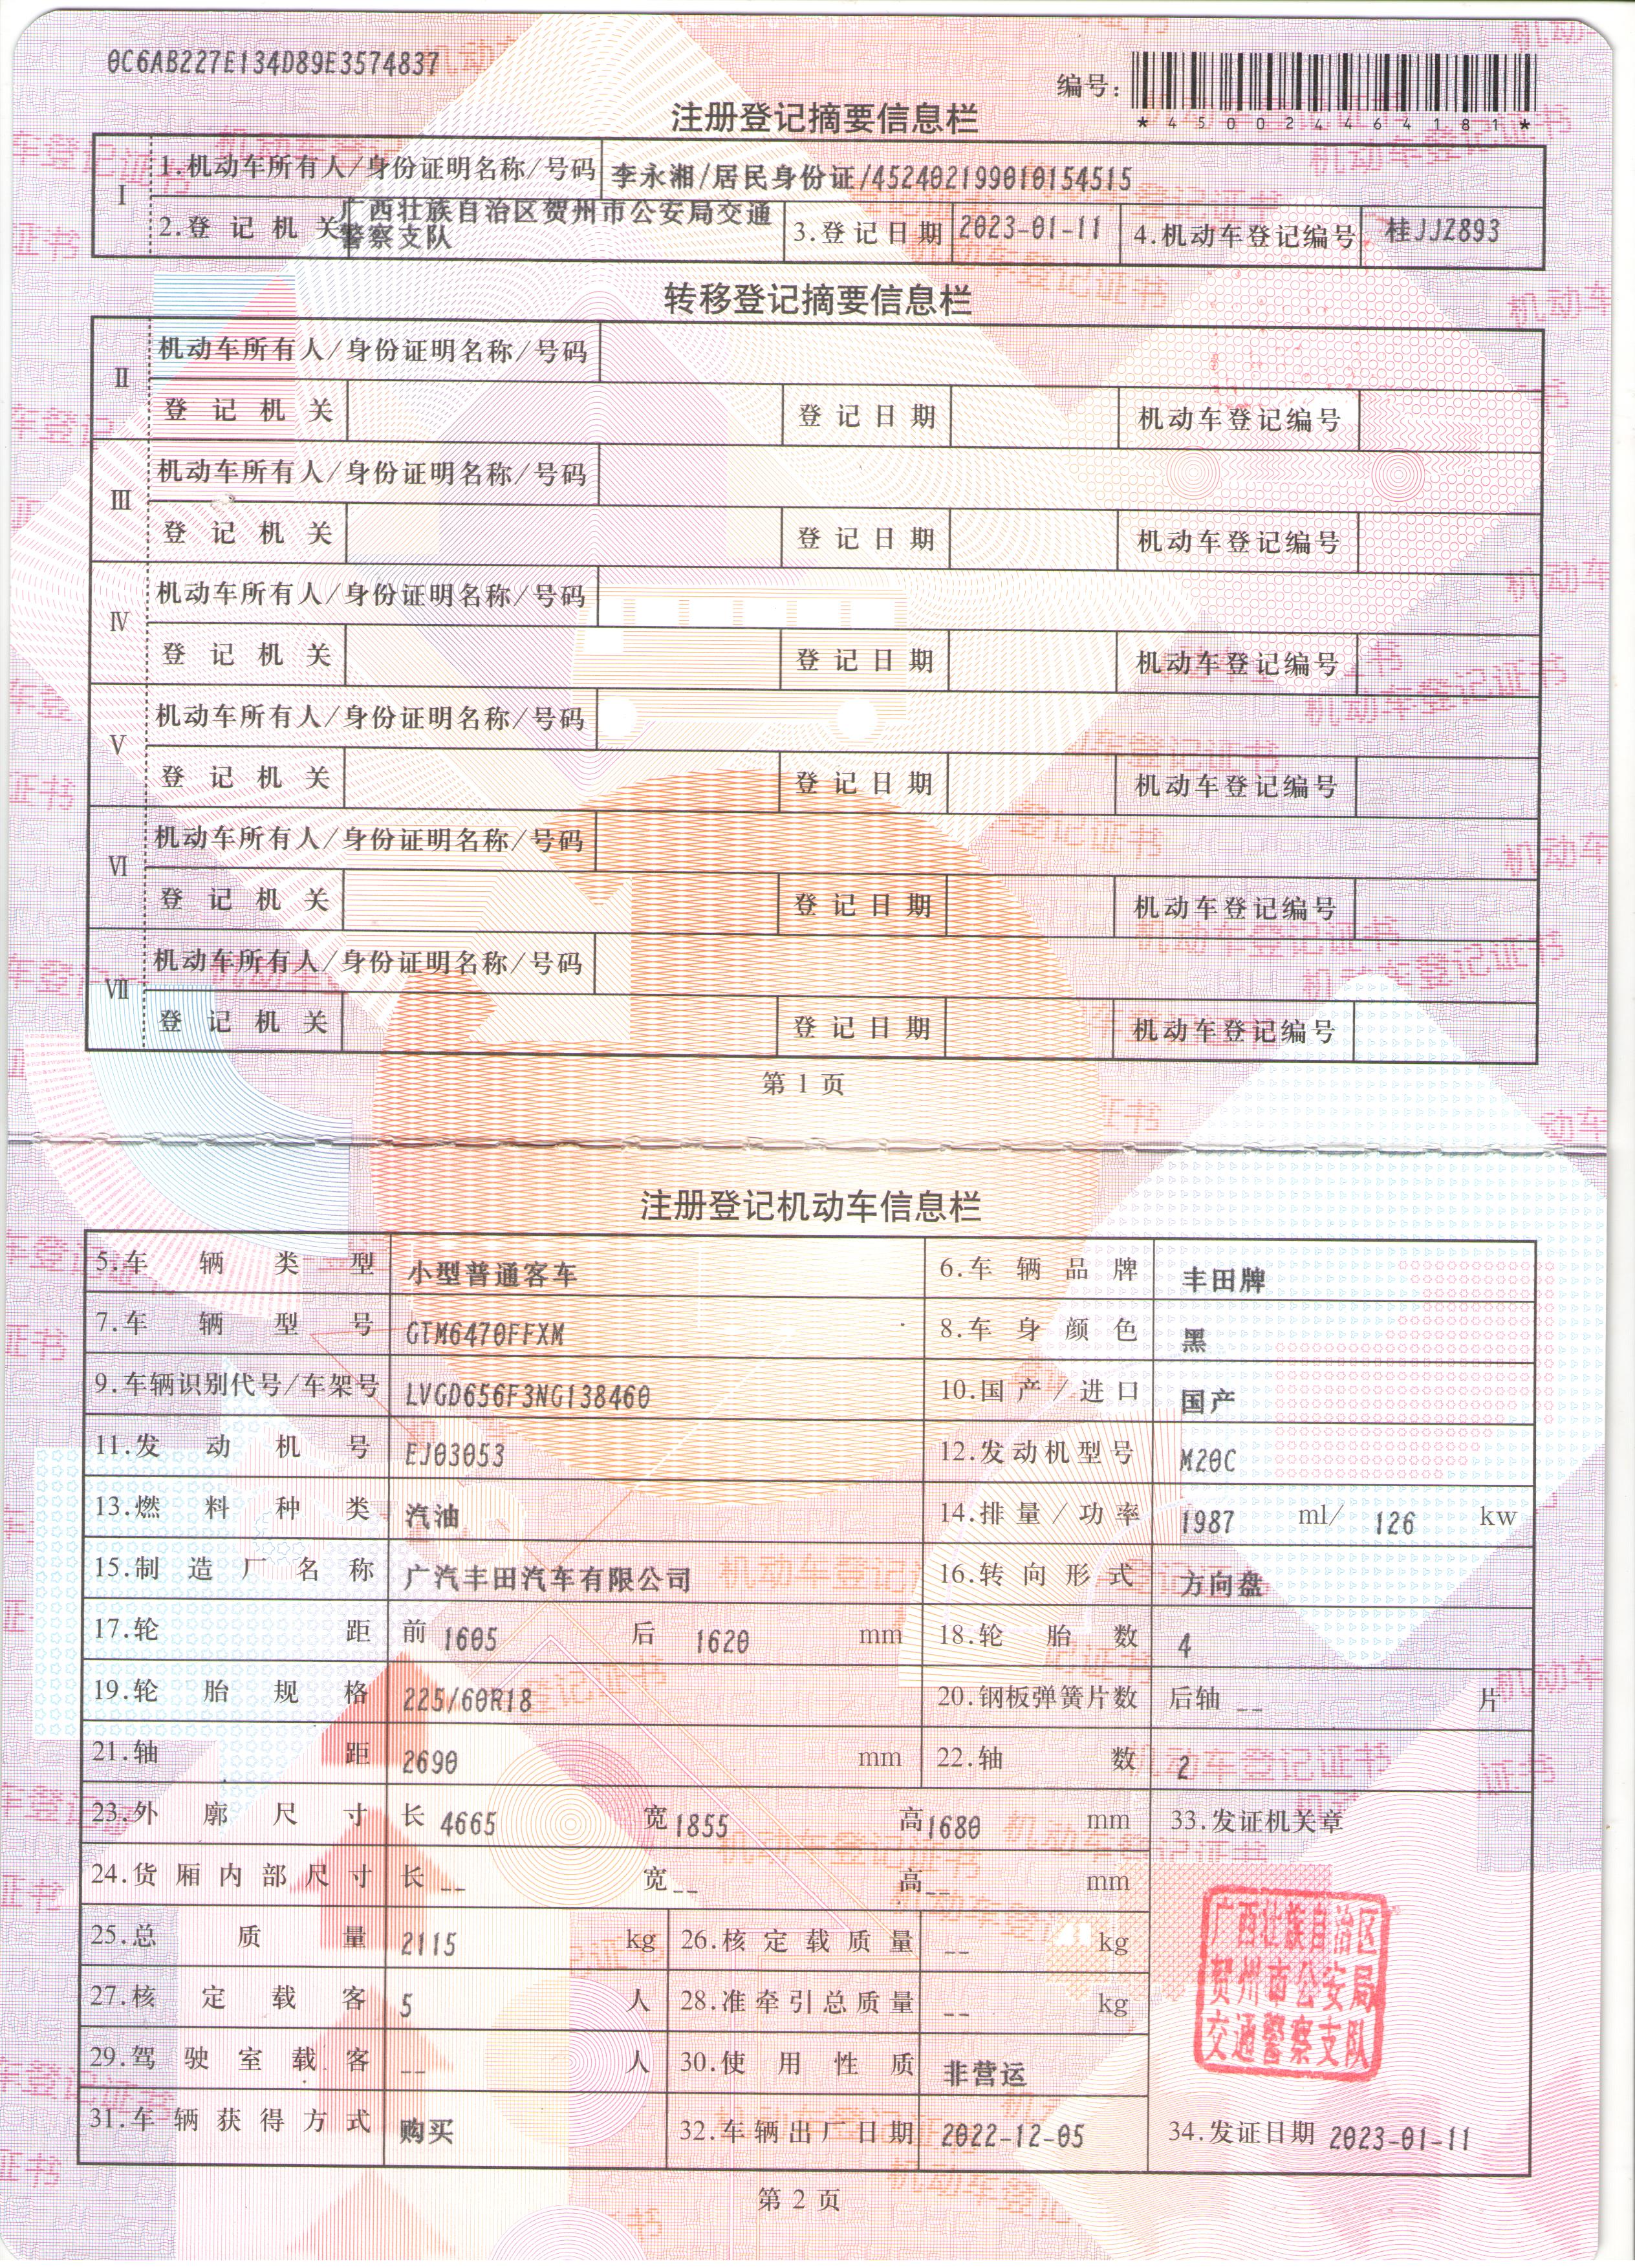 0C6AB227E134D89E3574837
编号：
*450024464181*
注册登记摘要信息栏
Ⅰ
1.机动车所有人/身份证明名称/号码 李永湘/居民身份证/452402199010154515
2.登记机关 广西壮族自治区贺州市公安局交通警察支队 3.登记日期 2023-01-11 4.机动车登记编号 桂JJZ893
转移登记摘要信息栏
Ⅱ
机动车所有人/身份证明名称/号码
登记机关 登记日期 机动车登记编号
Ⅲ
机动车所有人/身份证明名称/号码
登记机关 登记日期 机动车登记编号
Ⅳ
机动车所有人/身份证明名称/号码
登记机关 登记日期 机动车登记编号
Ⅴ
机动车所有人/身份证明名称/号码
登记机关 登记日期 机动车登记编号
Ⅵ
机动车所有人/身份证明名称/号码
登记机关 登记日期 机动车登记编号
Ⅶ
机动车所有人/身份证明名称/号码
登记机关 登记日期 机动车登记编号
第 1 页
注册登记机动车信息栏
5.车辆类型 小型普通客车 6.车辆品牌 丰田牌
7.车辆型号 GTM6470FFXM 8.车身颜色 黑
9.车辆识别代号/车架号 LVGD656F3NG138460 10.国产/进口 国产
11.发动机号 EJ03053 12.发动机型号 M20C
13.燃料种类 汽油 14.排量/功率 1987 ml/ 126 kw
15.制造厂名称 广汽丰田汽车有限公司 16.转向形式 方向盘
17.轮距 前 1605 后 1620 mm 18.轮胎数 4
19.轮胎规格 225/60R18 20.钢板弹簧片数 后轴 -- 片
21.轴距 2690 mm 22.轴数 2
23.外廓尺寸 长 4665 宽 1855 高 1680 mm 33.发证机关章
24.货厢内部尺寸 长 -- 宽 -- 高 -- mm
25.总质量 2115 kg 26.核定载质量 -- kg
27.核定载客 5 人 28.准牵引总质量 -- kg
29.驾驶室载客 -- 人 30.使用性质 非营运
广西壮族自治区
贺州市公安局
交通警察支队
31.车辆获得方式 购买 32.车辆出厂日期 2022-12-05 34.发证日期 2023-01-11
第 2 页